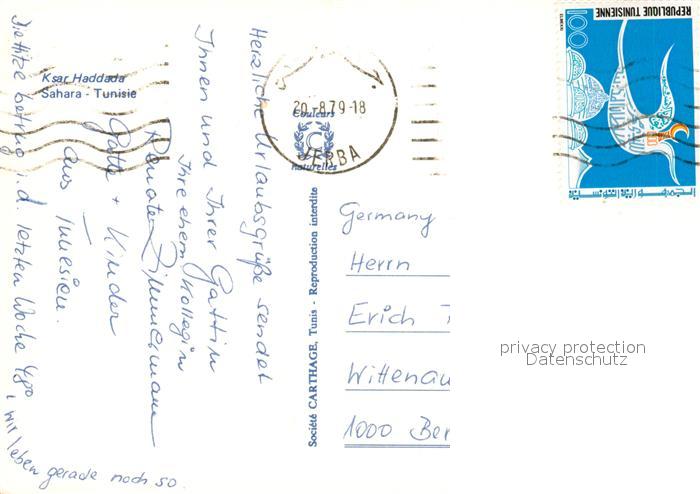 Ksar Haddada
Sahara - Tunisie
Herzliche Urlaubsgrüße sendet
Ihnen und Ihrer Gattin
Ihre ehem. Kollegin
Renate Zimmermann
Gatte + Kinder
aus Tunesien.
Die Hitze betrug i. d. letzten Woche 48°,
wir leben
gerade noch so.
Couleurs
C
naturelles
20-8.79-18
JERBA
Société CARTHAGE, Tunis - Reproduction interdite
REPUBLIQUE TUNISIENNE
100
ELMEKKI
الجمهورية التونسية
Germany
Herrn
Erich
Wittenau
1000 Ber
privacy protection
Datenschutz